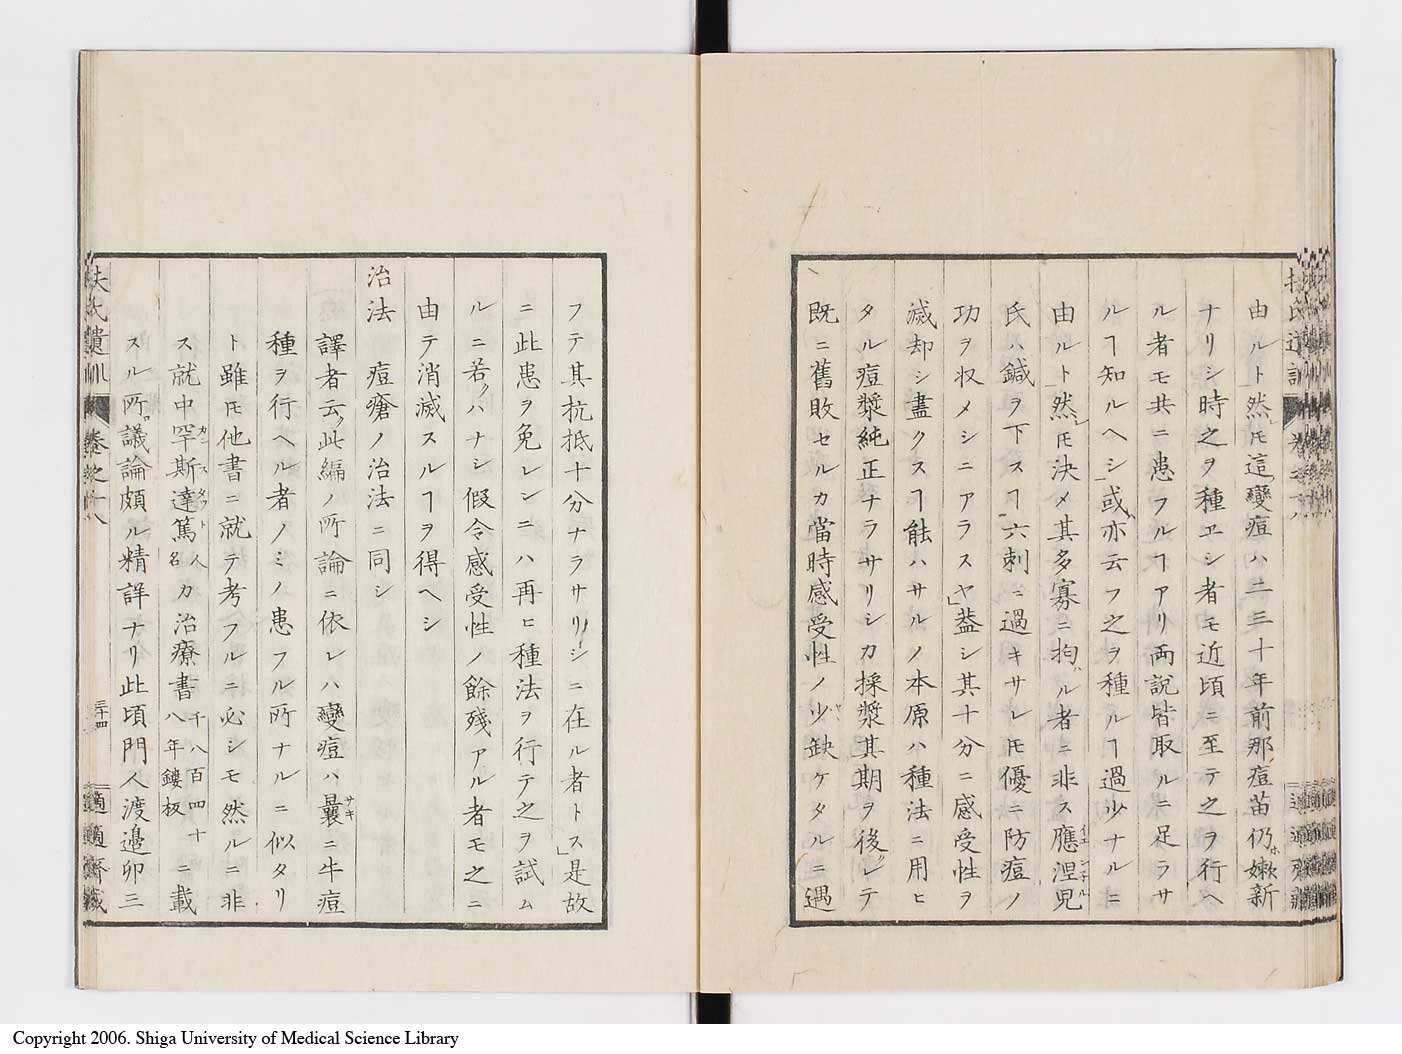 由ルト然㪳這變痘ハ二三十年前那痘苗仍ホ嫩新
ナリシ時之ヲ種ヱシ者モ近頃ニ至テ之ヲ行ヘ
ル者モ共ニ患フルヿアリ両説皆取ルニ足ラサ
ルヿ知ルヘシ或ハ亦云フ之ヲ種ルヿ過少ナルニ
由ルト然レ𪜈決メ其多寡ニ拘ハル者ニ非ス應涅児
氏ハ鍼ヲ下スヿ六刺ニ過キサレ𪜈優ニ防痘ノ
功ヲ収メシニアラスヤ」葢シ其十分ニ感受性ヲ
滅却シ盡クスヿ能ハサルノ本原ハ種法ニ用ヒ
タル痘漿純正ナラサリシカ採漿其期ヲ後レテ
既ニ舊敗セルカ當時感受性ノ少ヤ缺ケタルニ遇
フテ其抗抵十分ナラサリシニ在ル者トス」是故
ニ此患ヲ免レンニハ再ヒ種法ヲ行テ之ヲ試ム
ルニ若クハナシ假令感受性ノ餘残アル者モ之ニ
由テ消滅スルヿヲ得ヘシ
治法 痘瘡ノ治法ニ同シ
譯者云ク此編ノ所論ニ依レハ變痘ハ曩サキニ牛痘
種ヲ行ヘル者ノミノ患フル所ナルニ似タリ
ト雖𪜈他書ニ就テ考フルニ必シモ然ルニ非
ス就中罕斯達篤人名カ治療書千八百四十八年鏤板ニ載
スル所ロ議論頗ル精詳ナリ此頃門人渡邉卯三
扶氏遺訓 巻之十八 三十四 適適齋藏